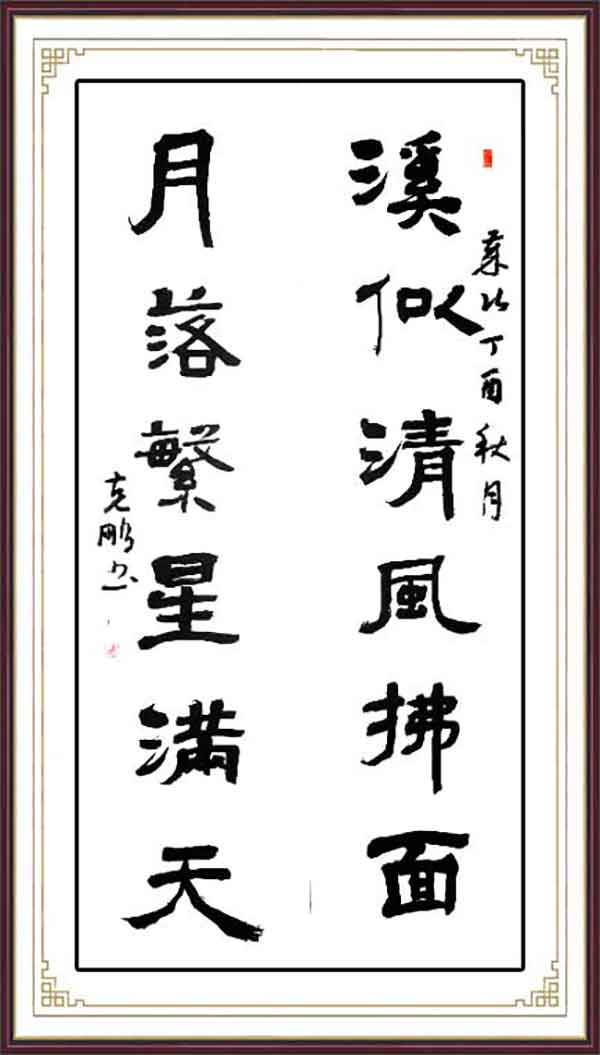 歲次丁酉秋月
溪似清風拂面
月落繁星滿天
克鹏书